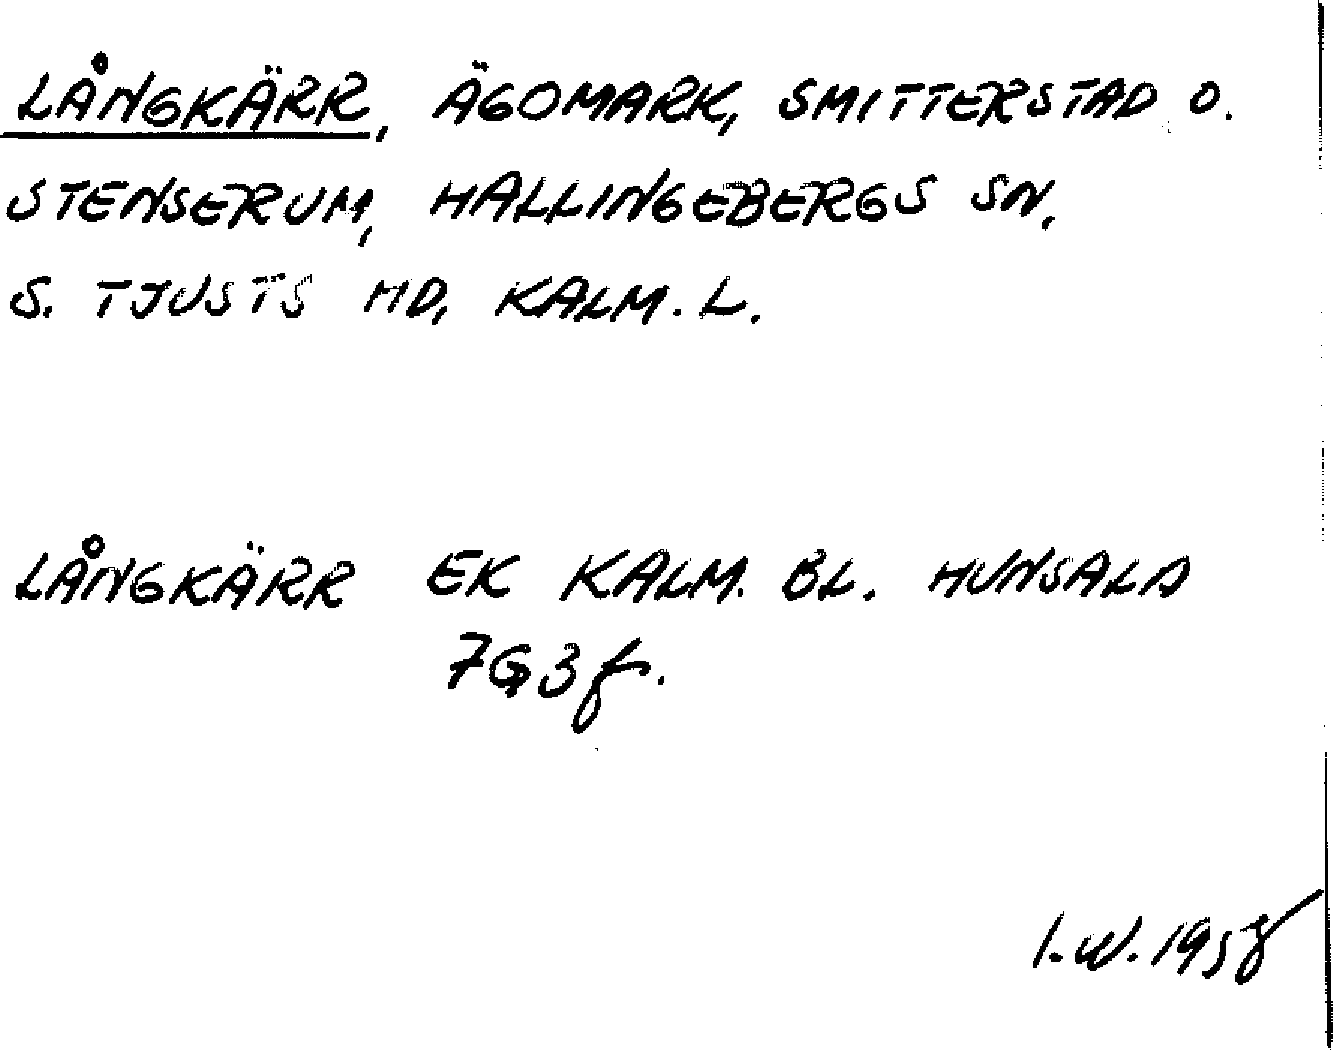 LÅNGKÄRR, ÄGOMARK, SMITTERSTAD O.
STENSERUM, HALLINGEBERGS SN,
S. TJUSTS HD, KALM. L.
LÅNGKÄRR EK KALM. BL. HUNSALA
7G3f.
I.W. 1958